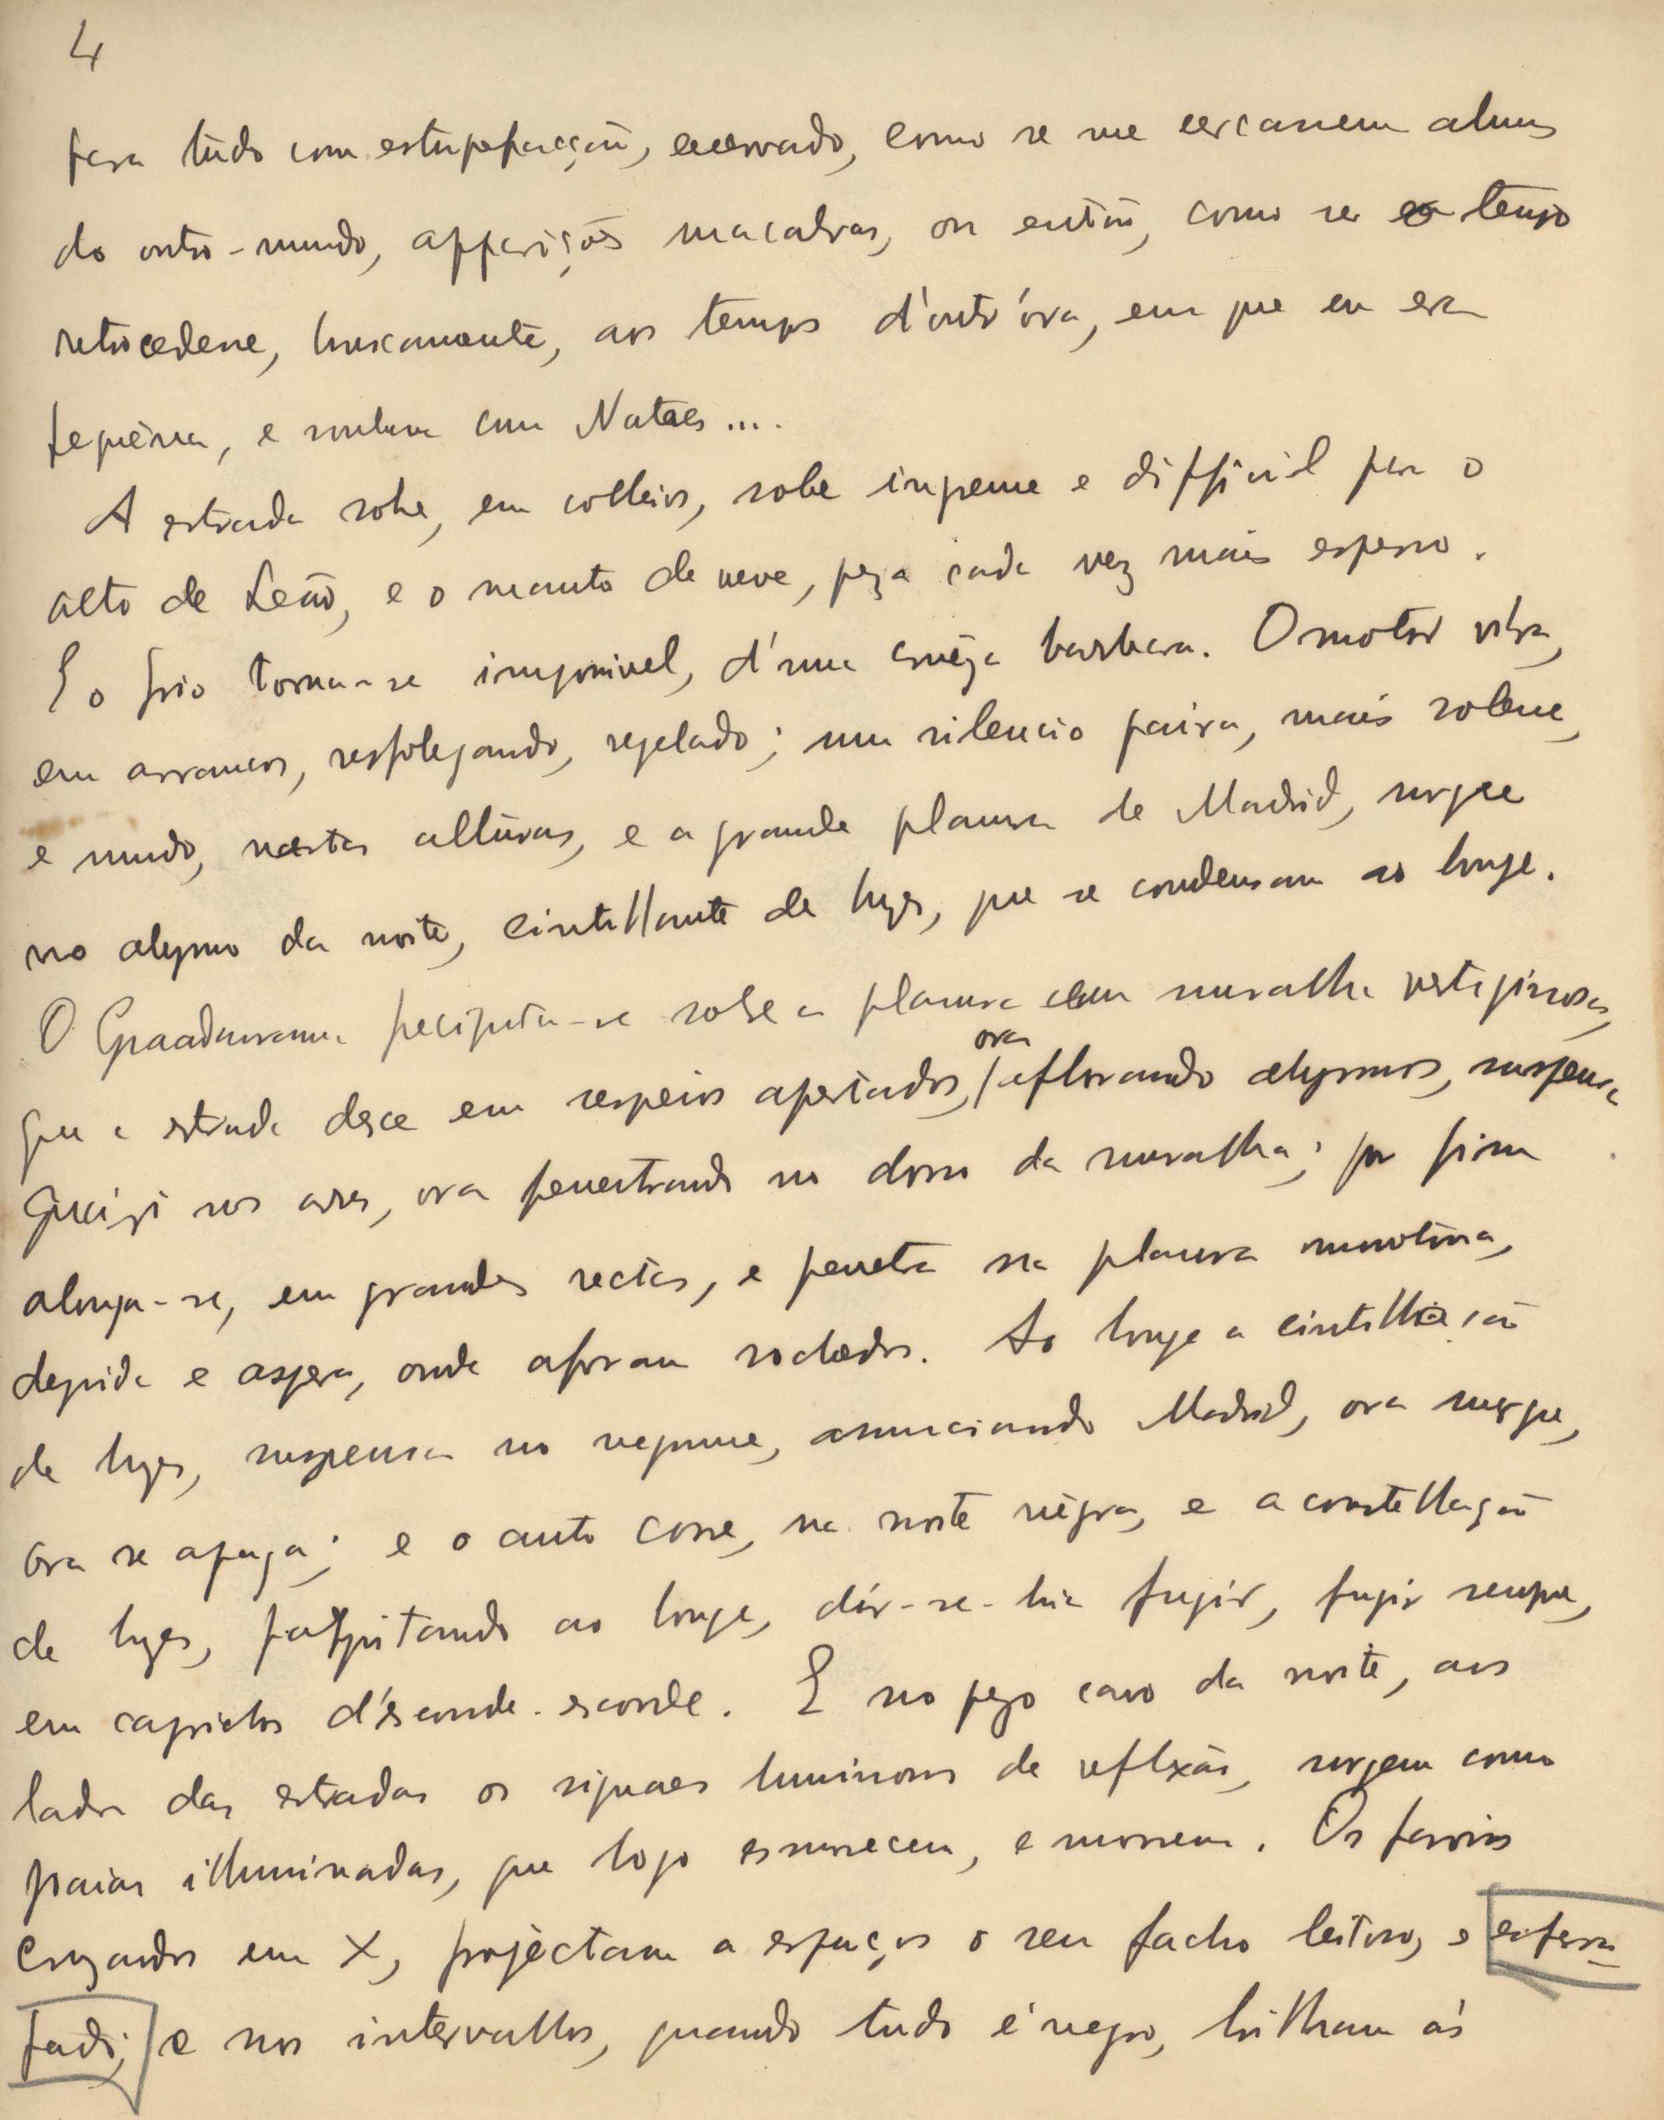 4
para tudo com estupefacção, enervado, como se me cercassem almas
do outro-mundo, apparições macabras, ou então, como se o tempo
retrocedesse, bruscamente, aos tempos d'outr'óra, em que eu era
pequêna, e sonhava com Nataes....
A estrada sobe, em colleios, sobe ingreme e difficil para o
alto de Leão, e o manto de neve, peza cada vez mais espesso.
E o frio torna-se impossivel, d'uma crueza barbara. O motor vibra,
em arrancos, resfolegando, regelado; um silencio paira, mais solene,
e mudo, nestas alturas, e a grande planura de Madrid, surge
no abysmo da noite, cintillante de luzes, que se condensam ao longe.
O Guadarrama precipita-se sobre a planura em muralha vertiginosa,
que a estrada desce em serpeios apertados, ora aflorando abysmos, suspensa
quázi nos ares, ora penetrando no dorso da muralha; por fim
alonga-se, em grandes rectas, e penetra na planura monotona,
despida e aspera, onde afloram rochedos. Ao longe a cintillação
de luzes, suspensa no negrume, annunciando Madrid, ora surge,
ora se apaga; e o auto corre, na noite nêgra, e a constellação
de luzes, palpitando ao longe, dir-se-hia fugir, fugir sempre,
em caprichos d'esconde-esconde. E no pego cavo da noite, aos
lados das estradas os signaes luminosos de reflexão, surgem como
praias illuminadas, que logo esmorecem, e morrem. Os faróis
cruzados em X, projéctam a espaços o seu facho leitoso, e esfarra
pado; e nos intervallos, quando tudo é negro, brilham ás